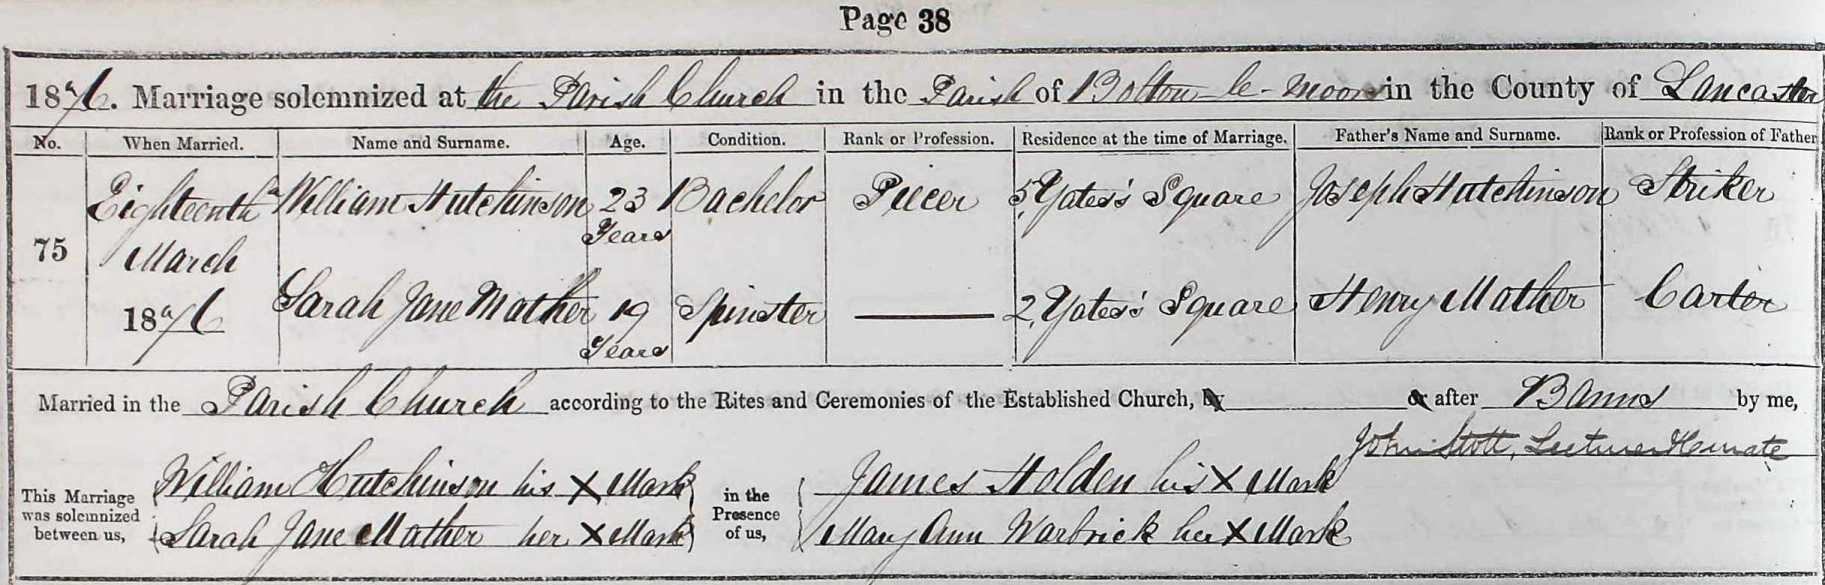 Page 38
1876. Marriage solemnized at the Parish Church in the Parish of Bolton-le-Moors in the County of Lancaster
No. When Married. Name and Surname. Age. Condition. Rank or Profession. Residence at the time of Marriage. Father's Name and Surname. Rank or Profession of Father
75 Eighteenth March 1876 William Hutchinson 23 Years Bachelor Piecer 5, Yates's Square Joseph Hutchinson Striker
Sarah Jane Mather 19 Years Spinster 2, Yates's Square Henry Mather Carter
Married in the Parish Church according to the Rites and Ceremonies of the Established Church, by or after Banns by me,
John Stott, Lecturer & Curate
This Marriage was solemnized between us, William Hutchinson his X Mark in the Presence of us, James Holden his X Mark
Sarah Jane Mather her X Mark Mary Ann Warbrick her X Mark